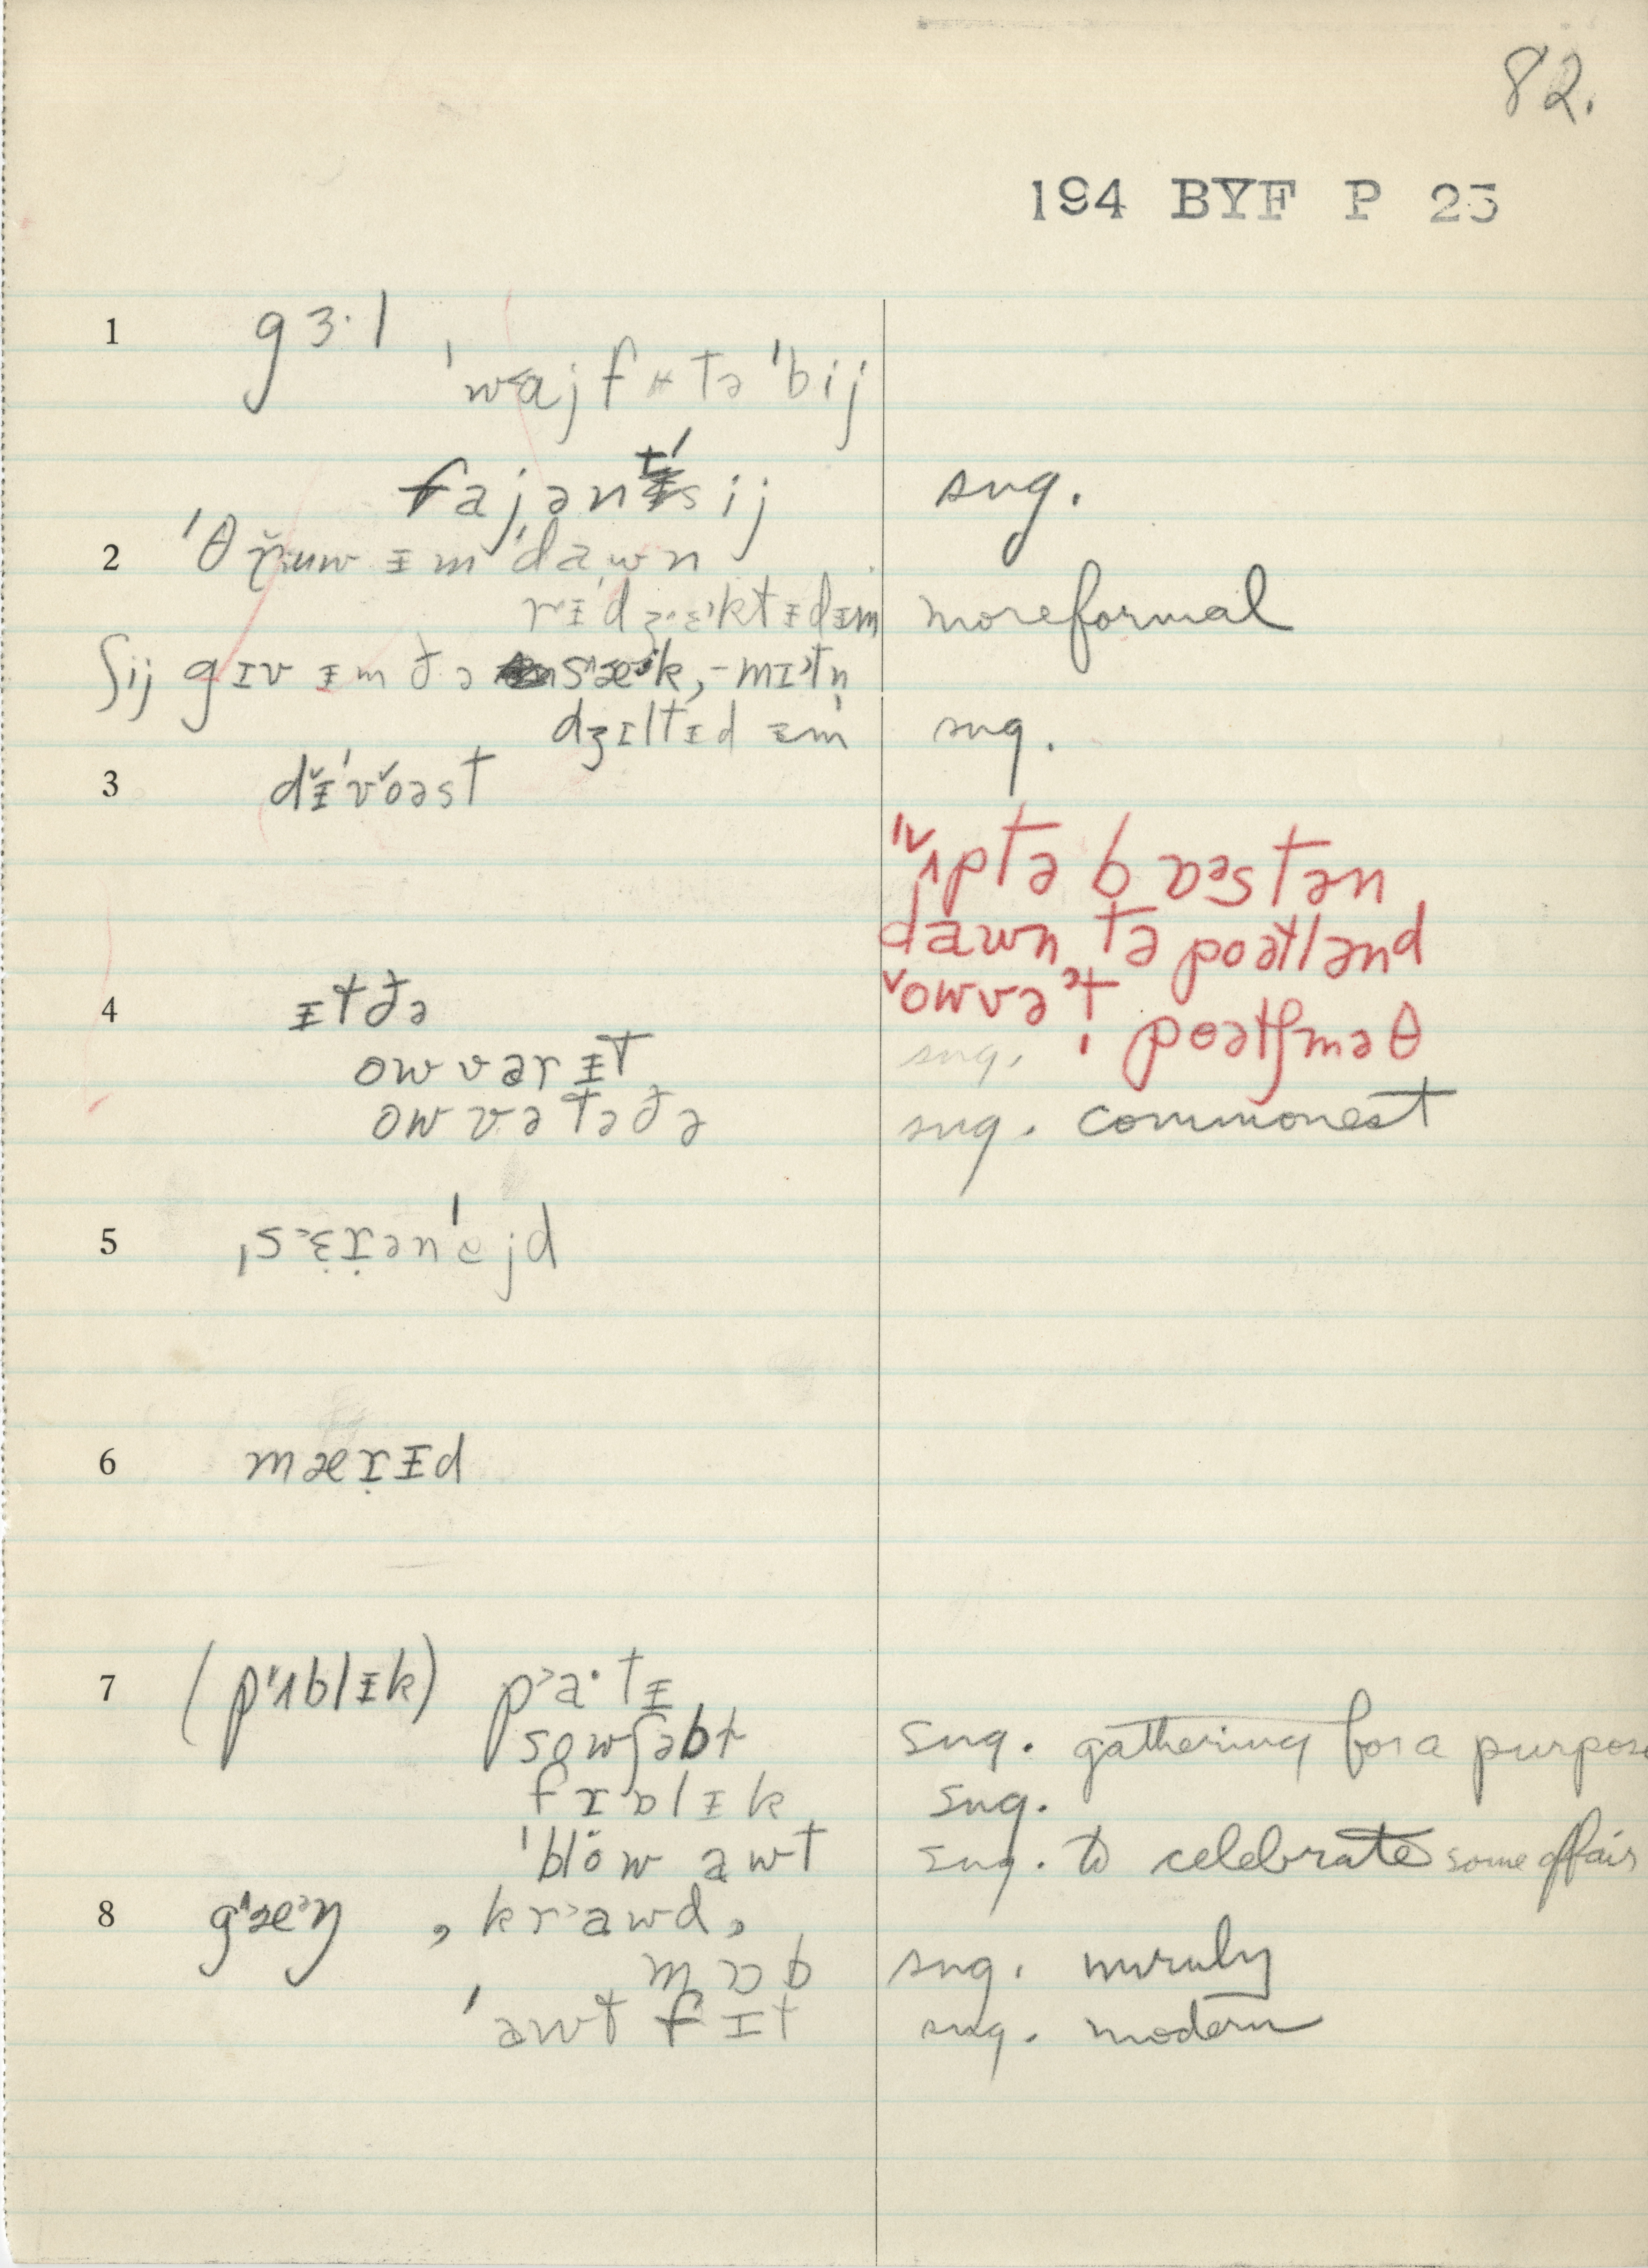 82.
194 BYF P 25
1 gɜ·l
ˈwajf tə ˈbij
fajənˈsij sug.
2 ˈθruw ᵻm ˈdawn
rᵻˈdʒɛktᵻdᵻm more formal
ʃij gɪv ᵻm ðə sæk, -mɪtn̩
dʒɪltᵻd ᵻm sug.
3 dᵻˈvoəst
ˈʌptə bɒstən
dawn tə poətlənd
4 ᵻt ðə
owvət poətsməθ
owvər ᵻt sug.
owvə tə ðə sug. commonest
5 ˌsɛrəˈnejd
6 mærᵻd
7 (pʌblᵻk) pa·tᵻ
sowʃəbl sug. gathering for a purpose
frɒlᵻk sug.
ˈblow awt sug. to celebrate some affair
8 gæŋ , krawd,
mɒb sug. unruly
ˈawt fɪt sug. modern